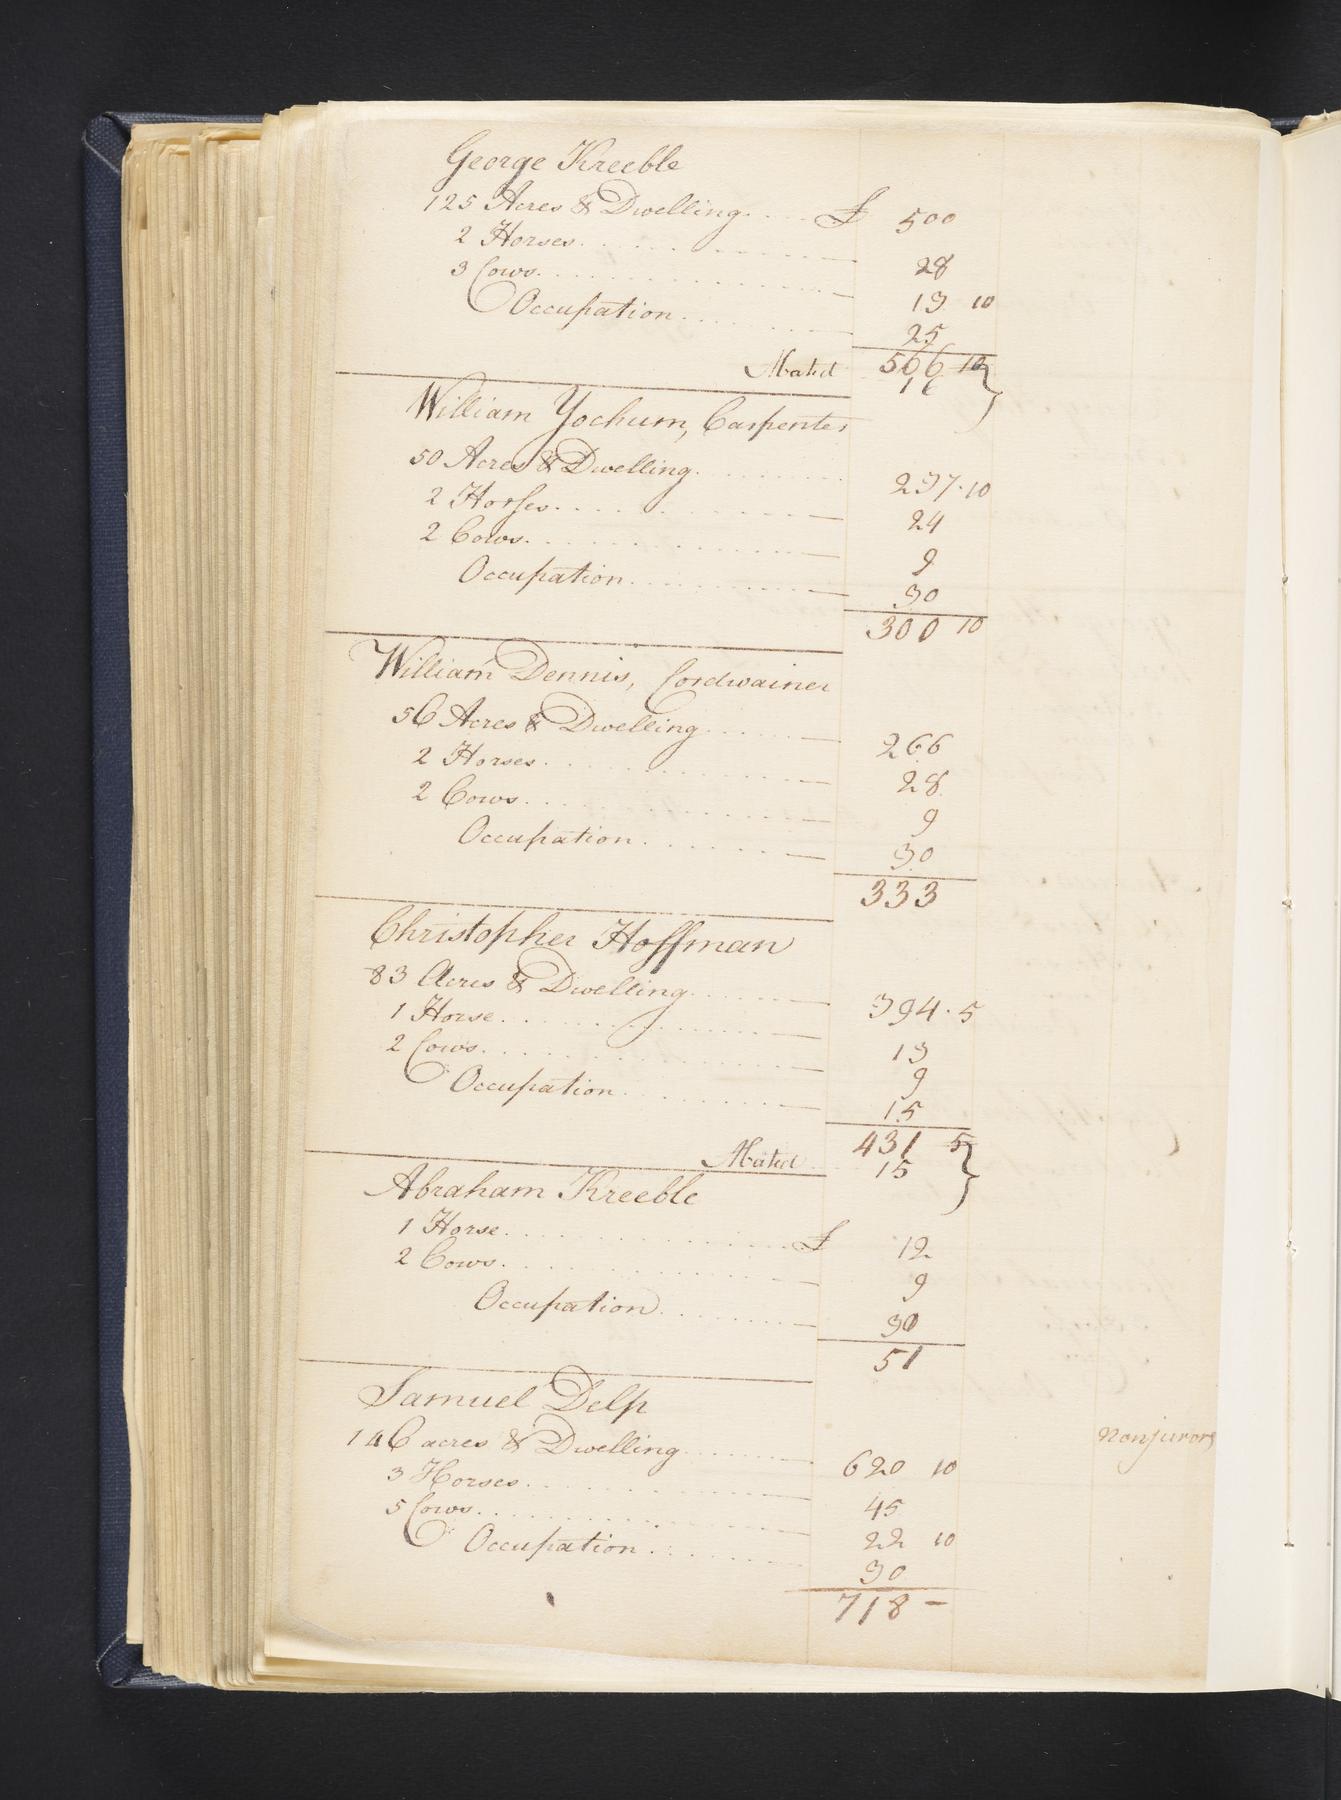 George Kreeble
125 Acres & Dwelling £ 500
2 Horses 28
3 Cows 13 10
Occupation 25
566 10
Abated 16
William Yochum, Carpenter
50 Acres & Dwelling 237.10
2 Horses 24
2 Cows 9
Occupation 30
300 10
William Dennis, Cordwainer
56 Acres & Dwelling 266
2 Horses 28
2 Cows 9
Occupation 30
333
Christopher Hoffman
83 Acres & Dwelling 394.5
1 Horse 13
2 Cows 9
Occupation 15
431 5
Abated 15
Abraham Kreeble
1 Horse £ 12
2 Cows 9
Occupation 30
51
Samuel Delp
nonjurors
146 acres & Dwelling 620 10
3 Horses 45
5 Cows 22 10
Occupation 30
718 -